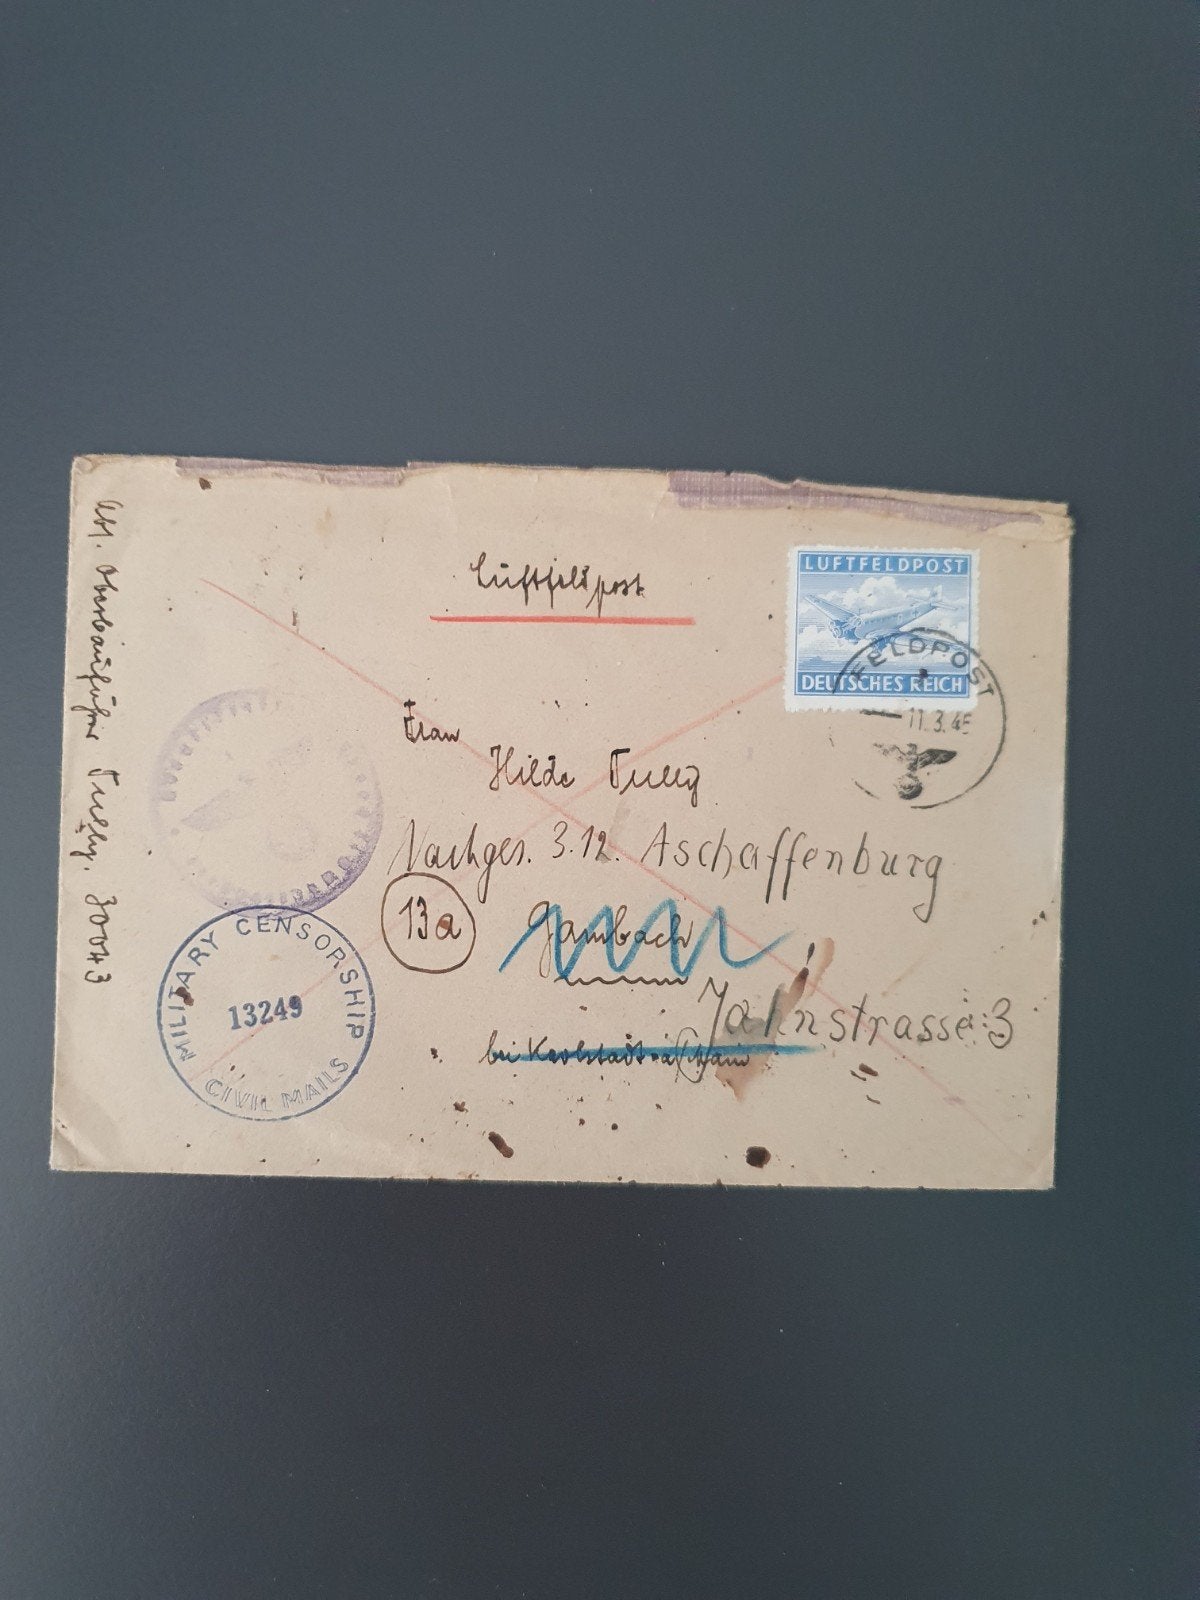 Luftfeldpost
LUFTFELDPOST
DEUTSCHES REICH
FELDPOST
11.3.45
Abs. Oberbauführer Tully. 30043
Frau
Hilde Tully
Nachges. 3.12. Aschaffenburg
13a
Gambach
Jahnstrasse:3
bei Karlstadt a/Main
MILITARY CENSORSHIP
13249
CIVIL MAILS